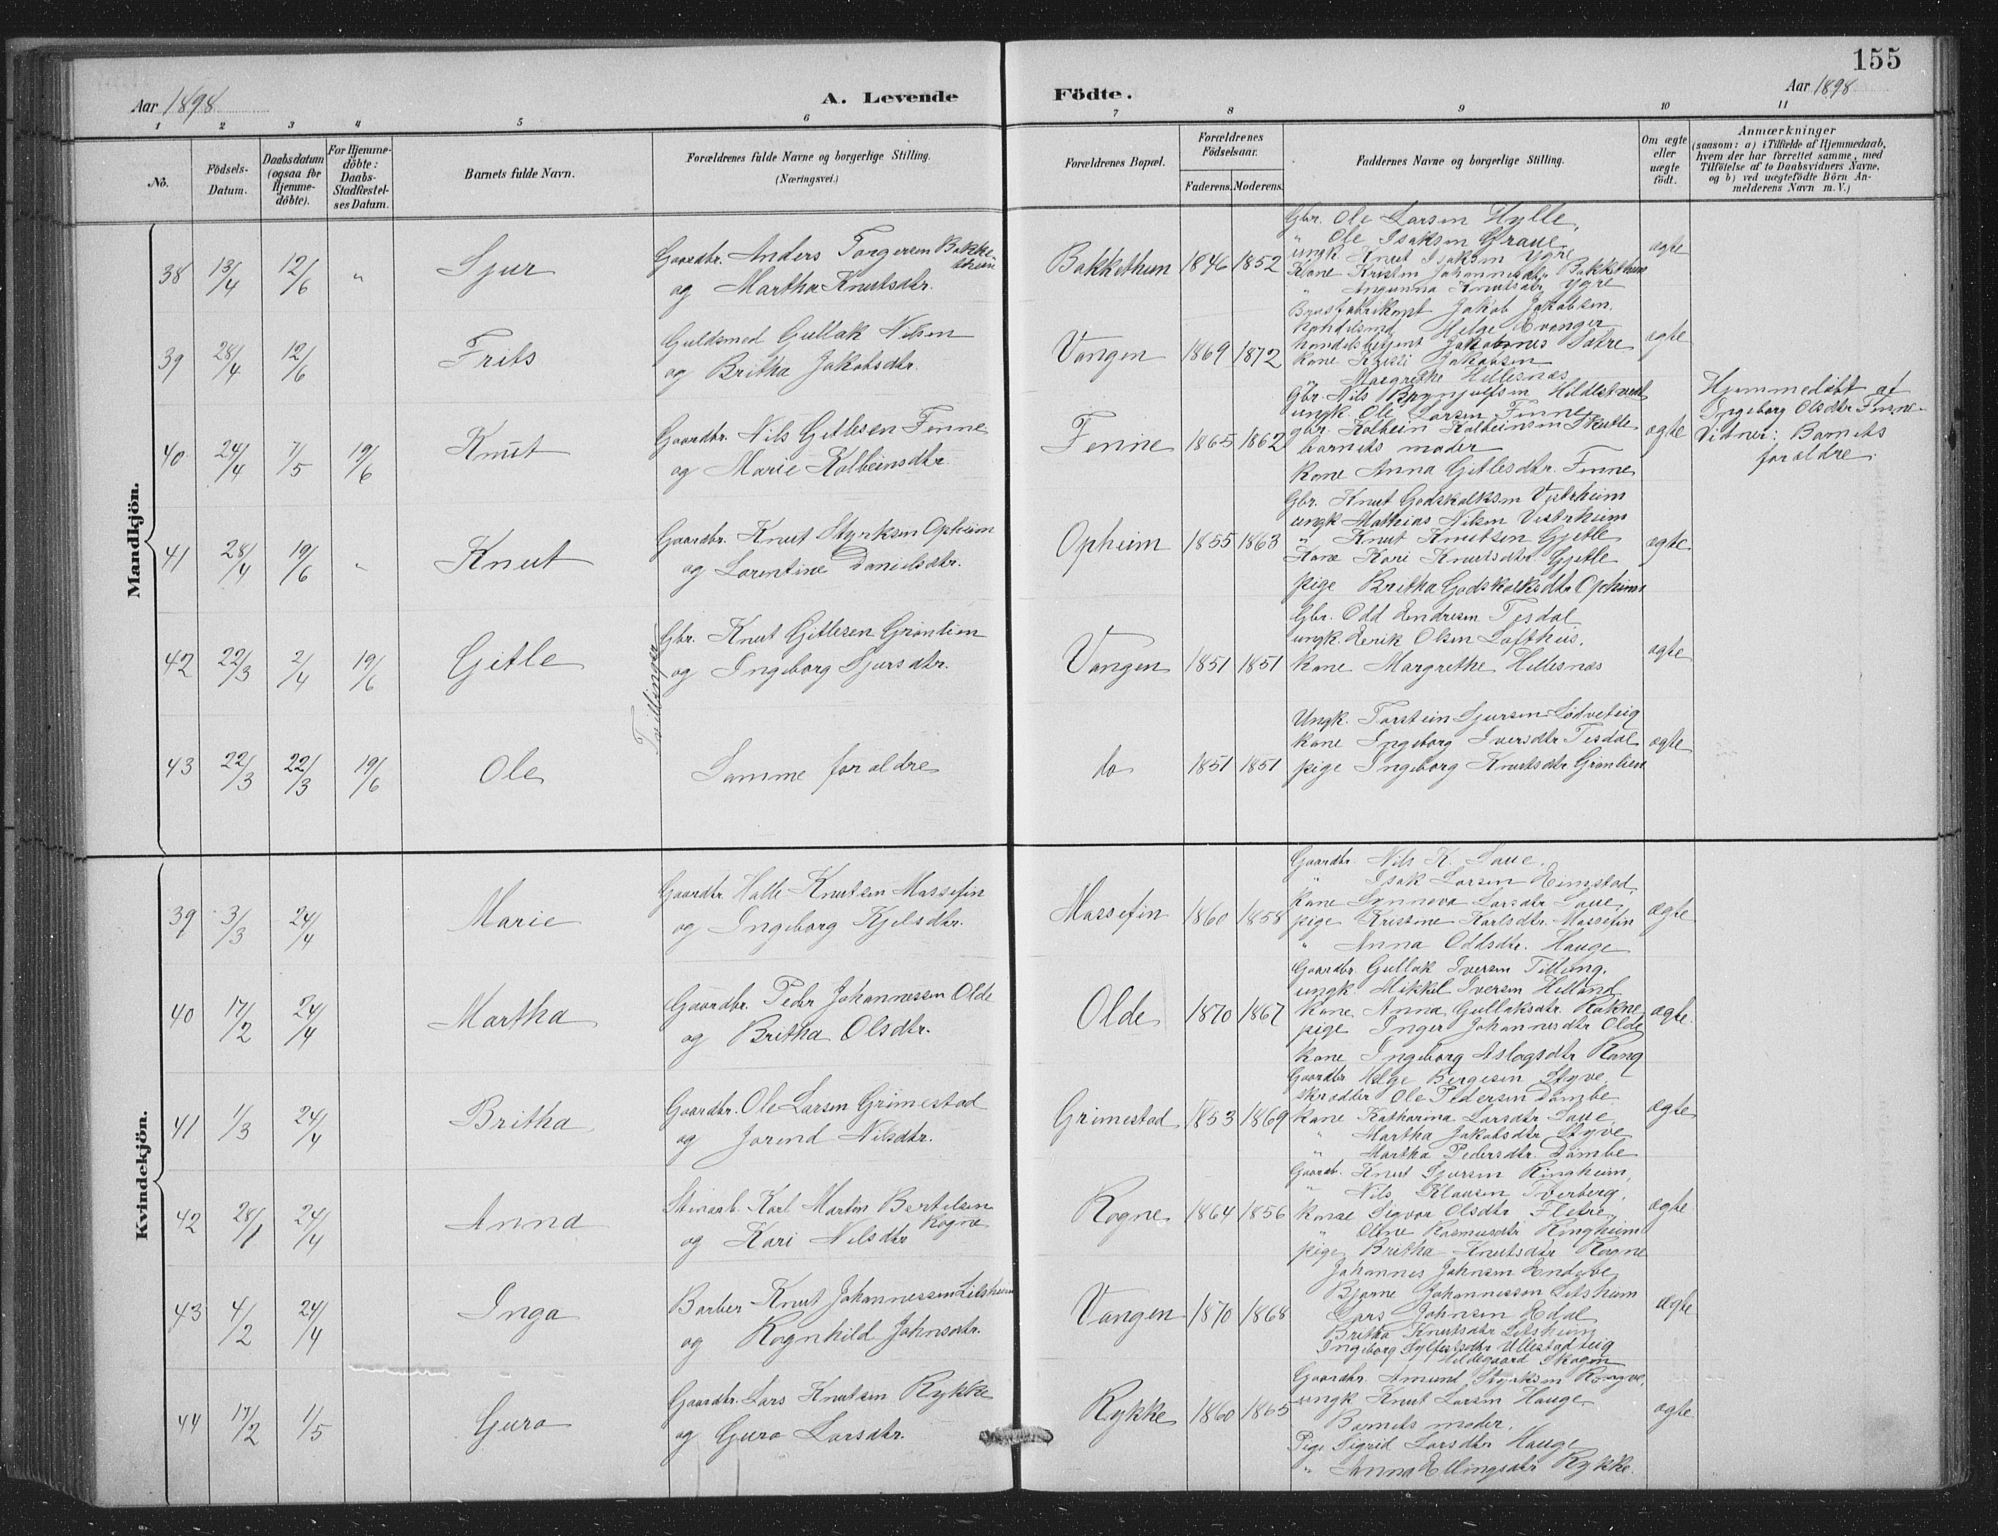 155
Aar 1898.
A. Levende Födte.
Aar 1898
1 2 3 4 5 6 7 8 9 10 11
No.
Födsels-Datum.
Daabsdatum (ogsaa for Hjemmedöbte).
For Hjemmedöbte: Daabs-Stadfæstelses Datum.
Barnets fulde Navn.
Forældrenes fulde Navne og borgerlige Stilling.
(Næringsvei.)
Forældrenes Bopæl.
Forældrenes Födselsaar.
Faderens. Moderens.
Faddernes Navne og borgerlige Stilling.
Om ægte eller uægte födt.
Anmærkninger
(saasom: a) i Tilfælde af Hjemmedaab, hvem der har forrettet samme, med Tilföielse af to Daabsvidners Navne, og b) ved uægtefödte Börn Anmelderens Navn m. V.)
Mandkjön.
38 13/4 12/6 " Sjur
Gaardbr. Anders Torgersen Bakkethun
og Martha Knutsdtr.
Bakkethun 1846 1852
Gbr. Ole Larsen Hylle,
" Ole Isaksen Graue
ungk. Knut Isaksen Ygre
Kone Kristen Johannesdtr Bakkethun
" Angunna Knutsdtr Ygre
ægte
39 28/4 12/6 Frits
Guldsmed Gullak Nilsen
og Britha Jakobsdtr.
Vangen 1869 1872
Jakob Jakobsen.
Handelsmd Helge Evanger
handelsbetjent Johannes Sætre
kone Jakobsen
Margrethe Hillesnæs
ægte
40 24/4 7/5 19/6 Knut
Gaardbr. Nils Gitlesen Fenne
og Marie Kolbeinsdtr.
Fenne 1865 1862
Gbr. Nils Brynjulfsen Hildestveit
ungk. Ole Larsen Finne
gbr. Kolbein Kolbeinsen Skutle
barnets moder
Kone Anna Gitlesdtr. Finne
ægte
Hjemmedöbt af
Ingeborg Olsdtr Finne.
Vidner: Barnets
forældre.
41 28/4 19/6 " Knut
Gaardbr. Knut Styrksen Opheim
og Lorentine Danielsdtr.
Opheim 1855 1863
Gbr. Knut Godskalksen Vestrheim
ungk Mathias Nilsen Vestrheim
" Knut Knutsen Gjetle
Kone Kari Knutsdtr Gjetle
pige Britha Godskalksdtr Opheim
ægte
Tvillinger
42 22/3 2/4 19/6 Gitle
Gbr. Knut Gitlesen Grönlien
og Ingeborg Sjursdtr.
Vangen 1851 1851
Gbr. Odd Endresen Tesdal
ungk. Eerik Olsen Lofthus.
kone Margrethe Hillesnæs
ægte
43 22/3 22/3 19/6 Ole
Samme forældre
do 1851 1851
Ungk. Torstein Sjursen Lödveteig
kone Ingeborg Iversdtr Tesdal
pige Ingeborg Knutsdtr Grönlien
ægte
Kvindekjön.
39 3/3 24/4 Marie
Gaardbr Halle Knutsen Massefin
og Ingeborg Kjelsdtr.
Massefin 1860 1858
Gaardbr. Nils K. Saue.
" Isak Larsen Heimstad,
Kone Synneva Larsdtr Saue,
pige Kristine Karlsdtr. Massefin
" Anna Oddsdtr. Hauge
ægte
40 17/2 24/4 Martha
Gaardbr. Peder Johannessen Olde
og Britha Olsdtr.
Olde 1870 1867
Gaardbr. Gullak Iversen Tillung.
ungk. Mikkel Iversen Helland
Kone Anna Gullaksdtr. Rokne
pige Inger Johannesdtr Olde
kone Ingeborg Aslagsdtr Rong
ægte.
41 1/3 24/4 Britha
Gaardbr. Ole Larsen Grimestad
og Jorend Nilsdtr.
Grimestad 1853 1869
Gaardbr Helge Bergesen Styve
skrædder Ole Pedersen Dömbe
Kone Katharina Larsdtr Saue
" Martha Jakobsdtr Styve
" Martha Pedersdtr. Dömbe
ægte
42 28/1 24/4 Anna
Stenarb. Karl Martin Bertelsen Rogne
og Kari Nilsdtr
Rogne 1864 1856
Gaardb. Knut Sjursen Ringheim,
" Nils Klausen Sverberg,
kone Sigvor Olsdtr Fletre
" Oline Rasmusdtr Ringheim
pige Britha Knutsdtr Rogne
ægte
43 4/2 24/4 Inga
Barber Knut Johannessen Litsheim
og Rognhild Johnsdtr.
Vangen 1870 1868
Johannes Johnsen Endeve
Bjarne Johannessen Litsheim
Lars Johnsen Edal
Britha Knutsdtr Litsheim
Ingeborg Sylfestsdtr Ullestadteig
Hildegaard Skogen
ægte
44 17/2 1/5 Guro
Gaardbr. Lars Knutsen Rykke
og Guro Larsdtr.
Rykke 1860 1865
Gaardbr. Amund Styrksen Rongve,
ungk Knut Larsen Hauge
Barnets moder.
Pige Sigrid Larsdtr Hauge
" Anna Ellingsdtr Rykke.
ægte